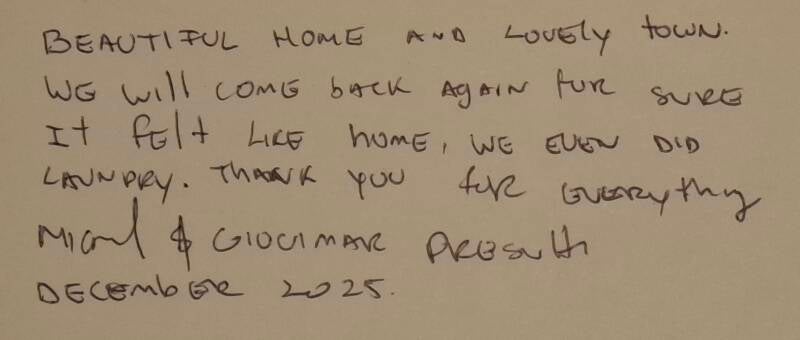 BEAUTIFUL HOME AND LOVELY TOWN.
WE WILL COME BACK AGAIN FUR SURE
IT FELT LIKE HOME, WE EVEN DID
LAUNDRY. THANK YOU FUR EVERYTHING
& GIOCIMAR
DECEMBER 2025.